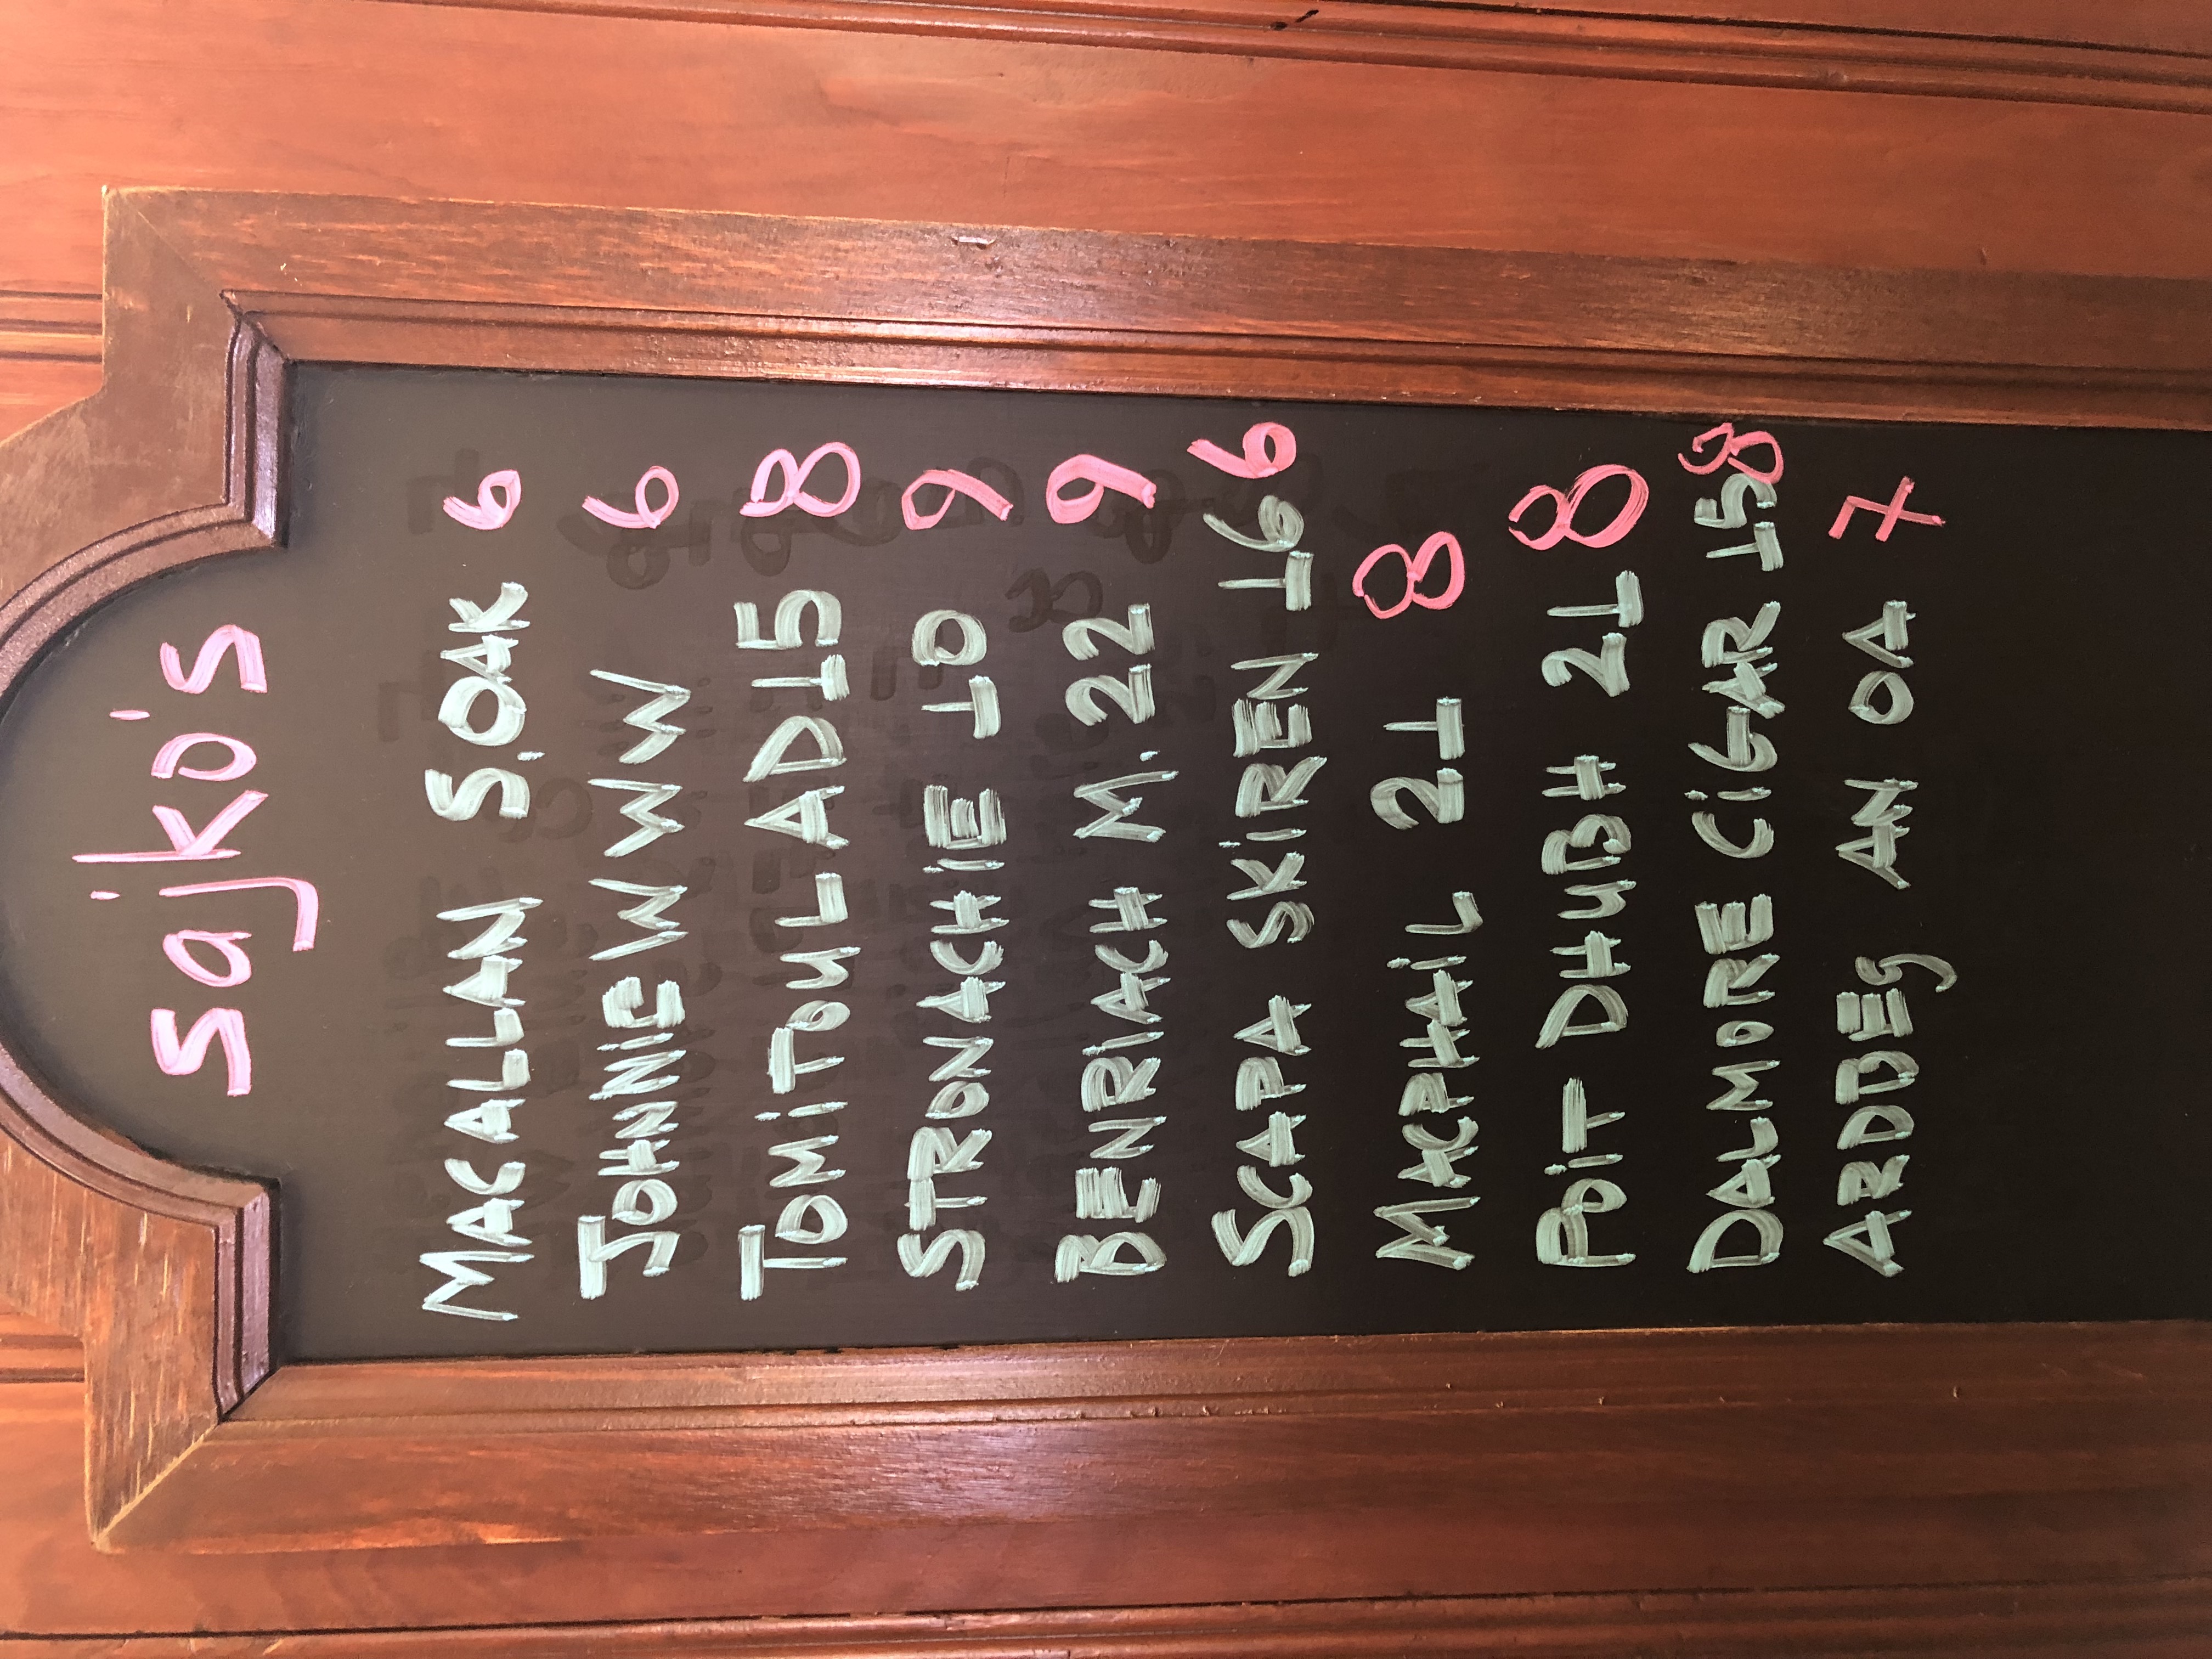 sajko's
MACALLAN S.OAK 6
JOHNNIE W WW 6
TOMiTOUL AD15 8
STRONACHIE 10 9
BENRIACH M.22 9
SCAPA SKiREN 16 6
MACPHAiL 21 8
POiT DHUBH 21 8
DALMORE CiGAR 15 8
ARDBEg AN OA 7